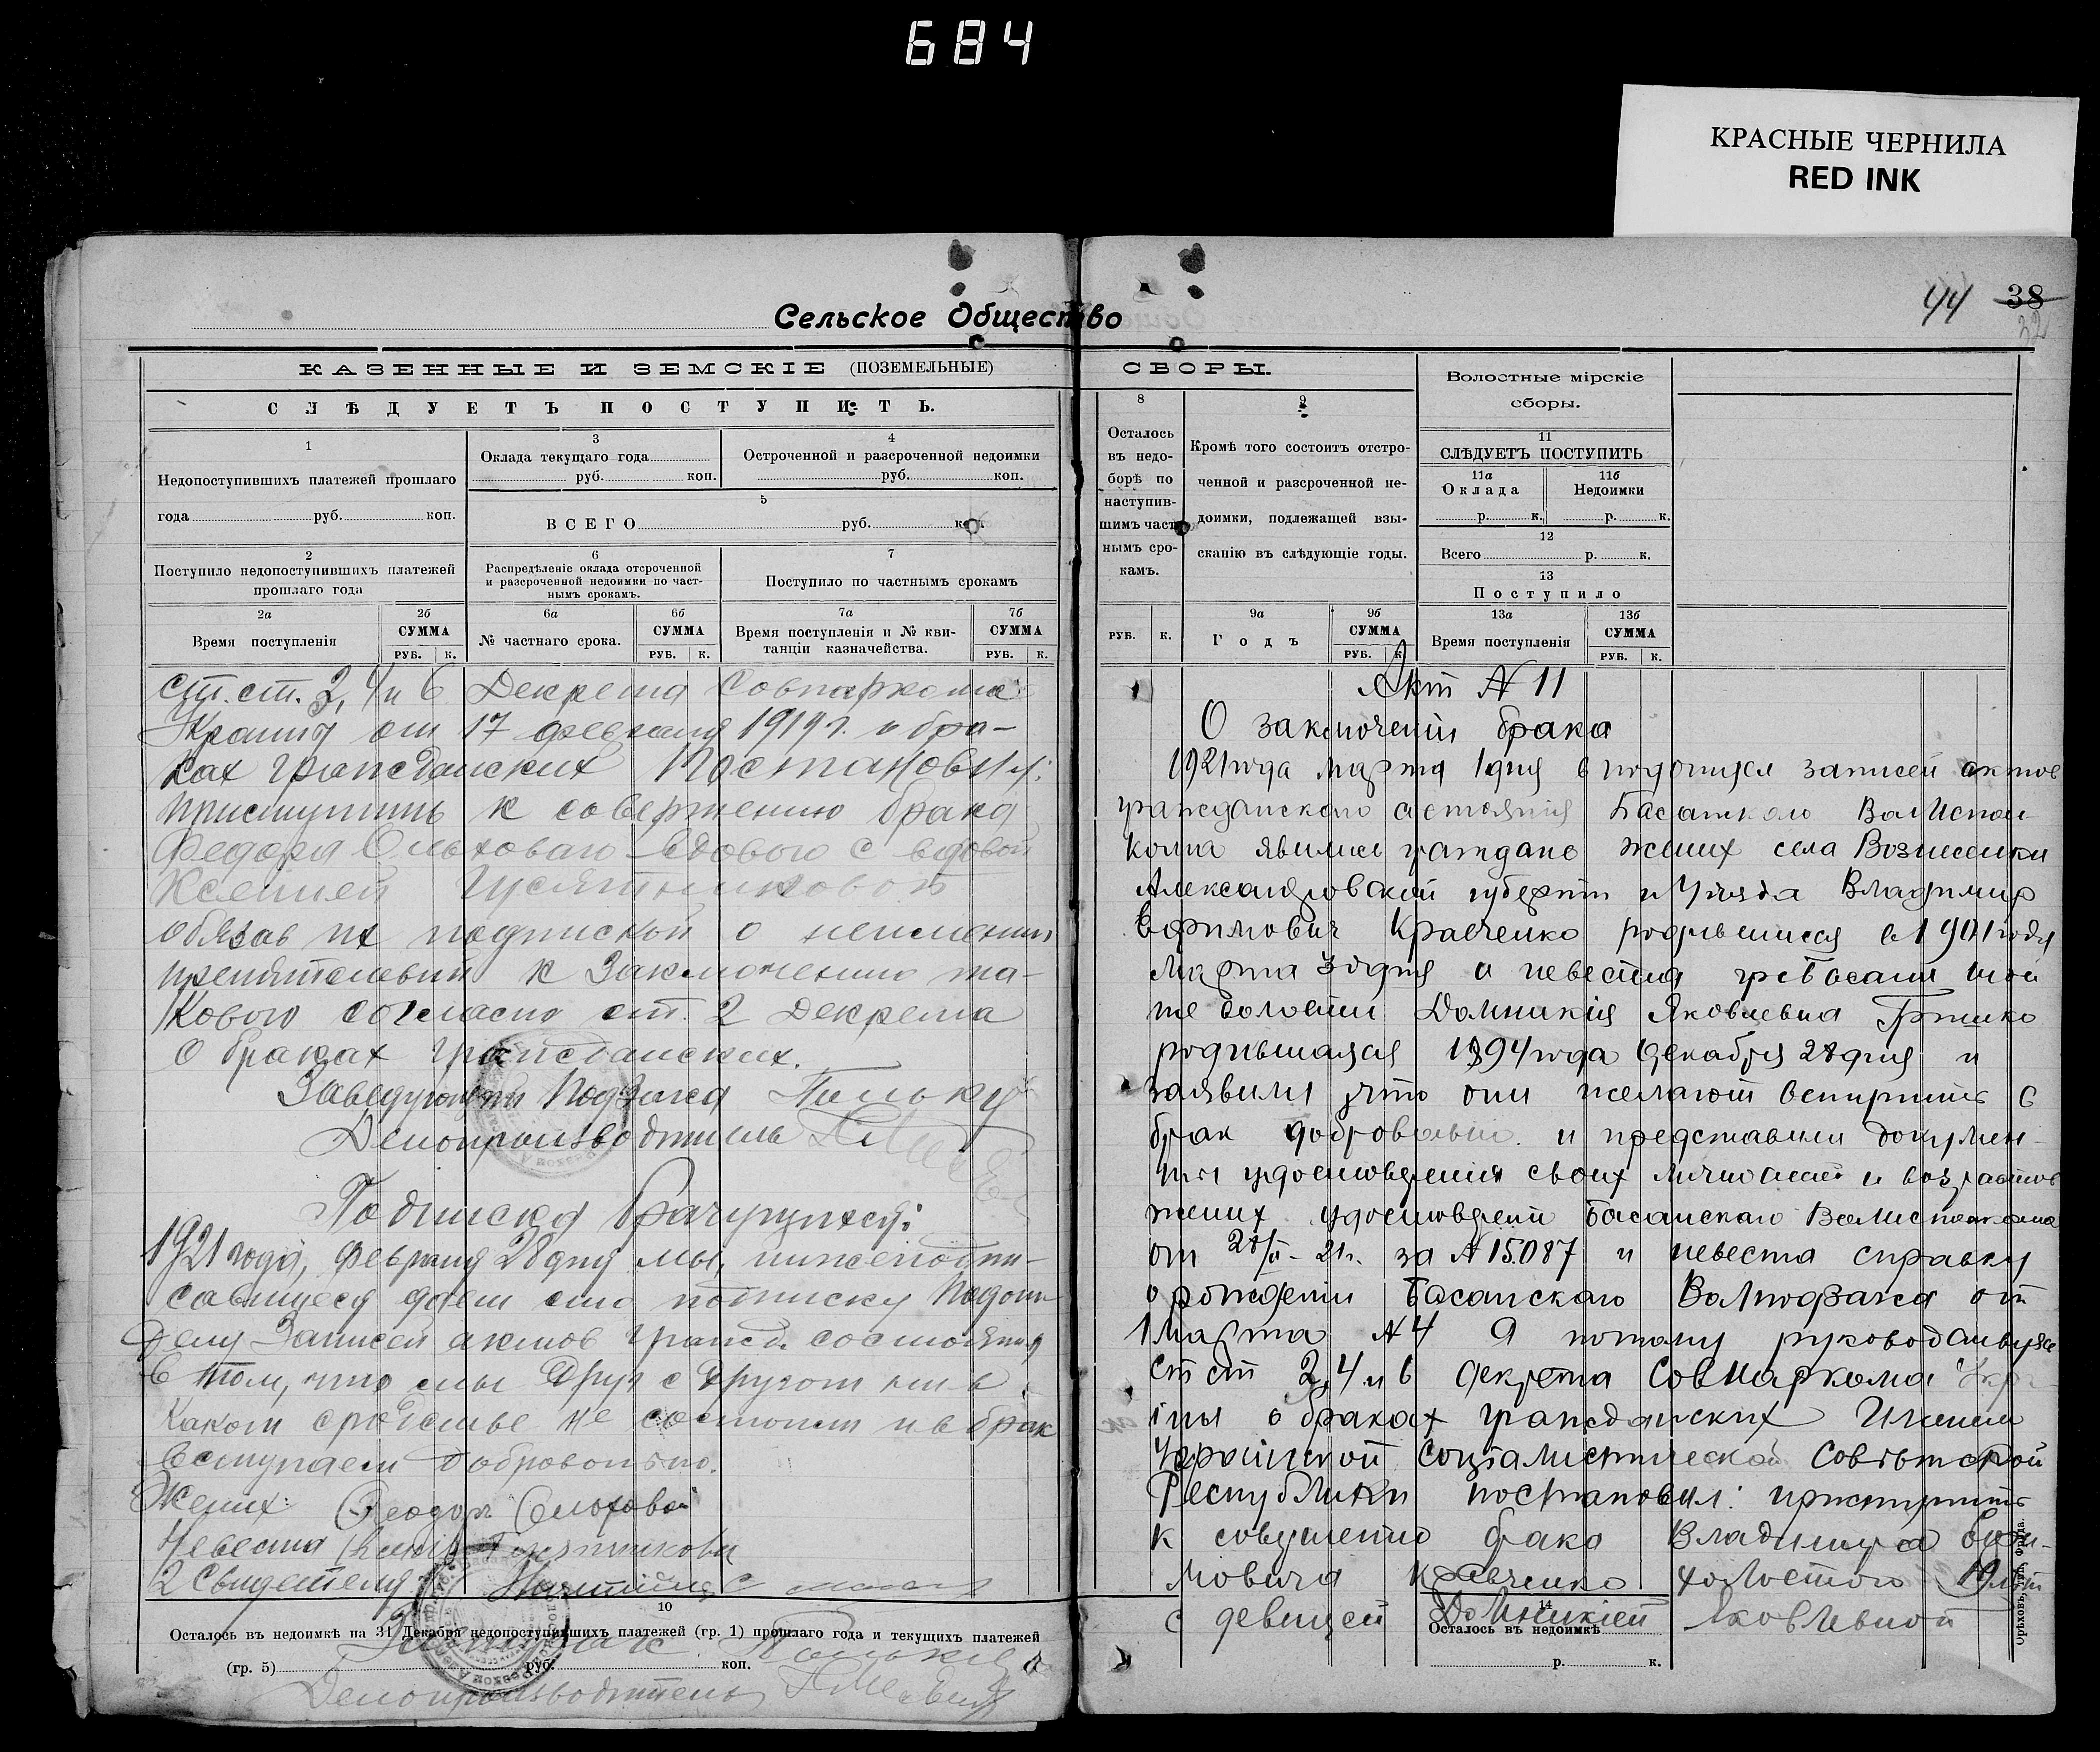 684
КРАСНЫЕ ЧЕРНИЛА
RED INK
44 38
32
Сельское Общество
КАЗЕННЫЕ И ЗЕМСКІЕ (ПОЗЕМЕЛЬНЫЕ)
СЛѢДУЕТЪ ПОСТУПИТЬ.
1
Недопоступившихъ платежей прошлаго
года руб. коп.
3
Оклада текущаго года
руб. коп.
4
Остроченной и разсроченной недоимки
руб. коп.
5
ВСЕГО руб. коп.
2
Поступило недопоступившихъ платежей
прошлаго года
6
Распредѣленіе оклада отсроченной
и разсроченной недоимки по част-
нымъ срокамъ.
7
Поступило по частнымъ срокамъ
2а
Время поступленія
2б
СУММА
РУБ. К.
6а
№ частнаго срока.
6б
СУММА
РУБ. К.
7а
Время поступленія и № кви-
танціи казначейства.
7б
СУММА
РУБ. К.
ст. ст. 2, 4 и 6 Декрета Совнаркома
Украины от 17 февраля 1919 г. о бра-
ках гражданских Постановил:
приступить к совершению брака
Федора Ольховаго вдоваго с вдовой
Ксенией Гусятниковой
обязав их подпиской о неимении
препятствий к заключению та-
кового согласно ст. 2 Декрета
о браках гражданских.
Заведующий Подзагса
Делопроизводитель
Подписка брачущихся:
1921 года, февраля 28 дня мы, нижеподпи-
савшиеся даем сию подписку Подот-
делу Записей актов гражд. состояния
в том, что мы друг с другом ни в
каком сродстве не состоим и в брак
вступаем добровольно.
Жених: Феодор Олюховой
Невеста Гусятникова
2 Свидетеля
10
Осталось въ недоимкѣ на 31 Декабря недопоступившихъ платежей (гр. 1) прошлаго года и текущихъ платежей
(гр. 5) руб. коп.
Делопроизводитель
СБОРЫ.
8
Осталось
въ недо-
борѣ по
наступив-
шимъ част-
нымъ сро-
камъ.
РУБ. К.
9
Кромѣ того состоитъ отстро-
ченной и разсроченной не-
доимки, подлежащей взы-
сканію въ слѣдующіе годы.
9а
Годъ
9б
СУММА
РУБ. К
Волостные мірскіе
сборы.
11
СЛѢДУЕТЪ ПОСТУПИТЬ
11а
Оклада
р. к.
11б
Недоимки
р. к.
12
Всего р. к.
13
Поступило
13а
Время поступленія
13б
СУММА
РУБ. К.
Акт N 11
О заключении брака
1921 года марта 1 дня в подотдел записей актов
гражданского состояния Басанского Волиспол-
кома явились граждане жених села Вознесенки
Александровской губернии и Уезда Владимир
Ефимович Кравченко родившийся в 1901 года
марта 30 дня и невеста гр. Басанской
же волости Домникия Яковлевна Гришко
родившаяся 1894 года декабря 28 дня и
заявили что они желают вступить в
брак добровольно и представили докумен-
ты удостоверения своих личностей и возрастов
жених удостоверение Басанского Волисполкома
от 28/II - 21 г. за N 15.087 и невеста справку
о рождении Басанского Волподзагса от
1 марта N 4 А потому руководствуясь
ст ст 2, 4 и 6 декрета Совнаркома Укра-
ины о браках гражданских Именем
Украинской Социалистической Советской
Республики постановил: приступить
к совершению брака Владимира Ефи-
мовича Кравченко холостого 19 лет
с девицей Домникией Яковлевной
14
Осталось въ недоимкѣ
р. к.
Орѣховъ, Тип. Фрида.